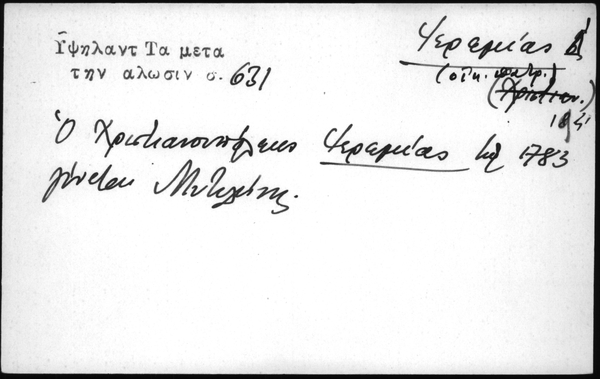 Ὑψηλαντ Τα μετα
την αλωσιν σ. 631
Ἱερεμίας Δ'
(οἰκ. πατρ.)
(Χριστιαν.)
Ὁ Χριστιανουπόλεως Ἱερεμίας τῷ 1783
γίνεται Μυτιλήνης.